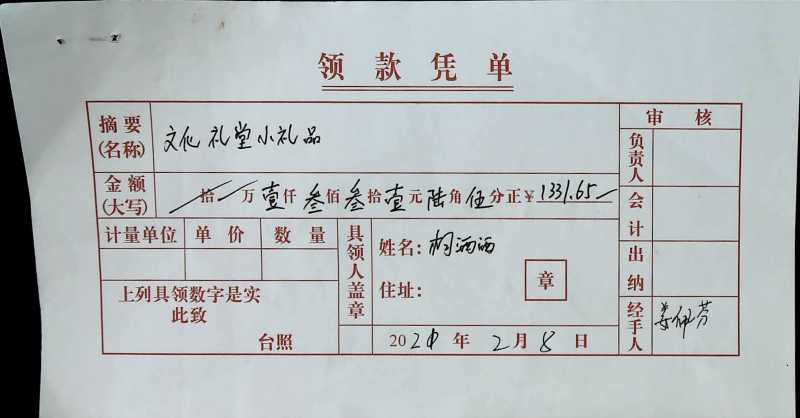 领款凭单
摘要(名称) 文化礼堂小礼品
金额(大写) 拾 万壹仟叁佰叁拾壹元陆角伍分正¥1331.65
计量单位 单价 数量
上列具领数字是实
此致
台照
具领人盖章
姓名:
住址: 章
年 2月8日
审核
负责人
会计
出纳
经手人 姜佩芬